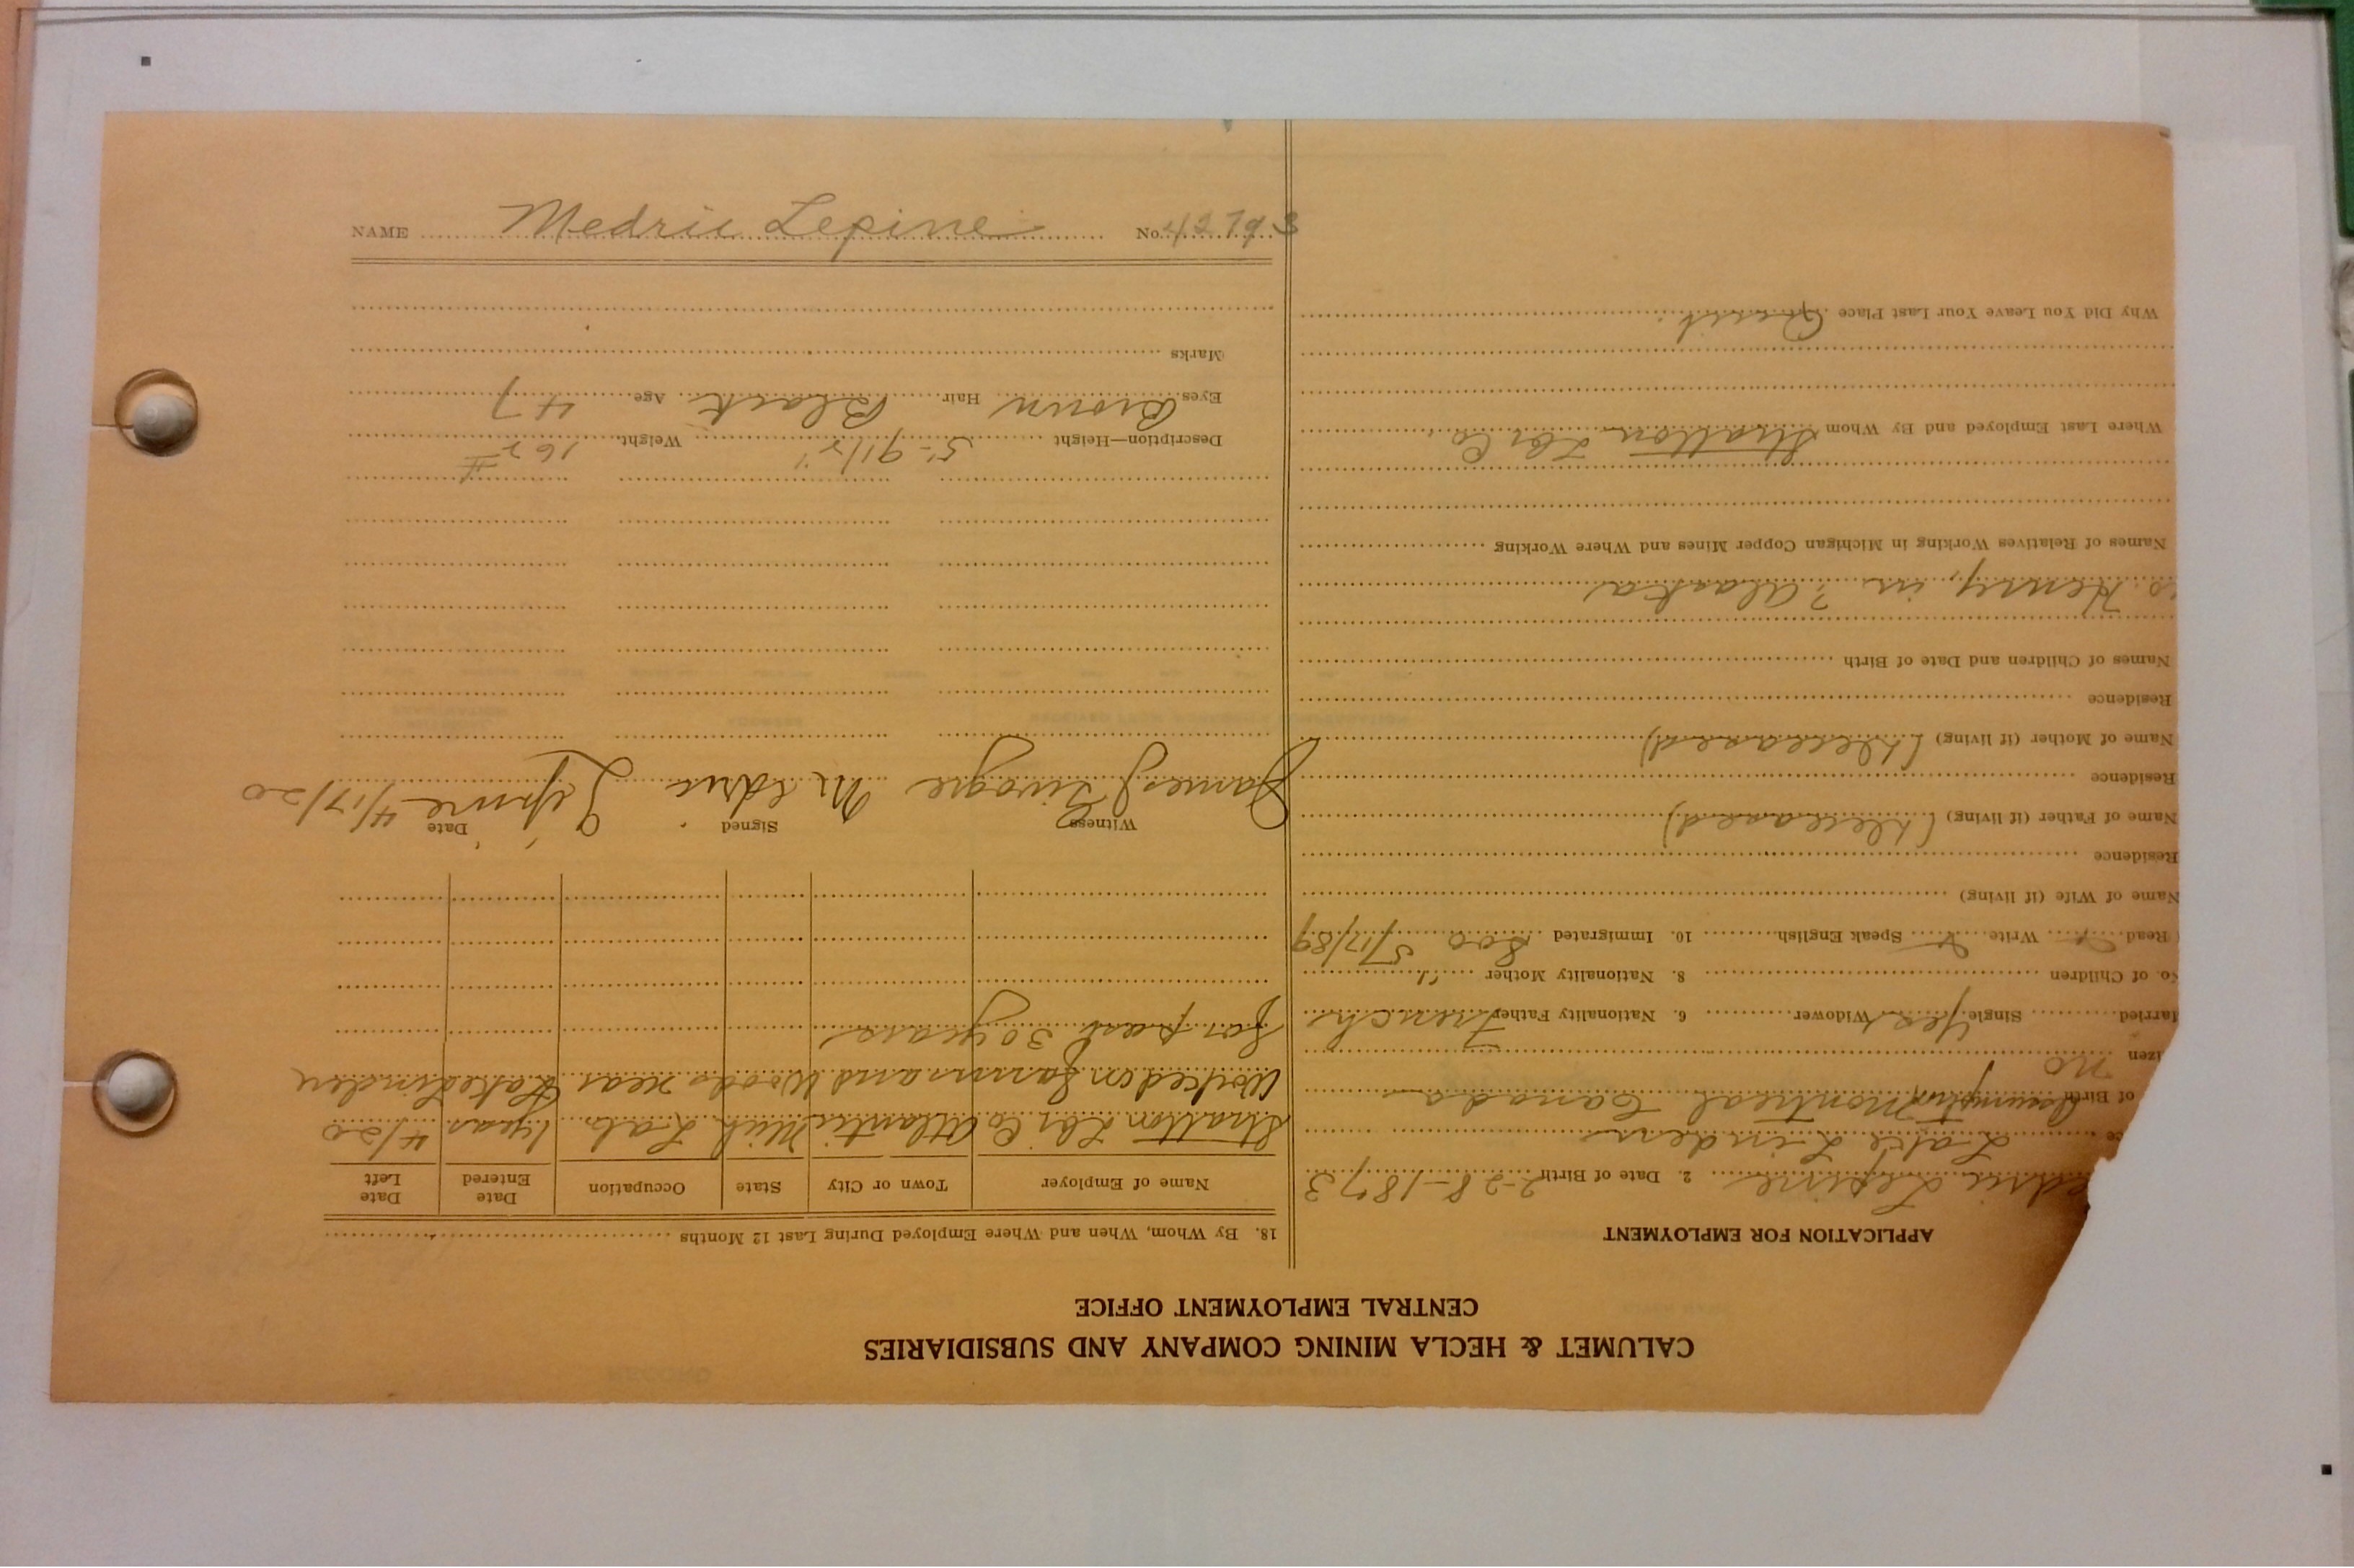 CALUMET & HECLA MINING COMPANY AND SUBSIDIARIES
CENTRAL EMPLOYMENT OFFICE
APPLICATION FOR EMPLOYMENT
edric Lepine 2. Date of Birth 2-28-1873
ce Lake Linden
of Birth Montreal Canada
izen no
Married Single Yes Widower 6. Nationality Father French
No. of Children 8. Nationality Mother "
Read x Write x Speak English 10. Immigrated Soo 5/17/89
Name of Wife (if living)
Residence
Name of Father (if living) (deceased)
Residence
Name of Mother (if living) (deceased)
Residence
Names of Children and Date of Birth
Henry, in ? Alaska
Names of Relatives Working in Michigan Copper Mines and Where Working
Where Last Employed and By Whom Stratton Lbr Co.
Why Did You Leave Your Last Place Quit
18. By Whom, When and Where Employed During Last 12 Months
Name of Employer Town or City State Occupation Date Entered Date Left
Stratton Lbr Co Atlantic Mich Lab 1 year 4/20
Worked on farms and Woods near Lake Linden
for past 30 years
Witness Signed Date
James Medric Lepine 4/17/20
Description—Height 5'-9 1/2" Weight 162 #
Eyes Brown Hair Black Age 47
Marks
NAME Medric Lepine No. 42793